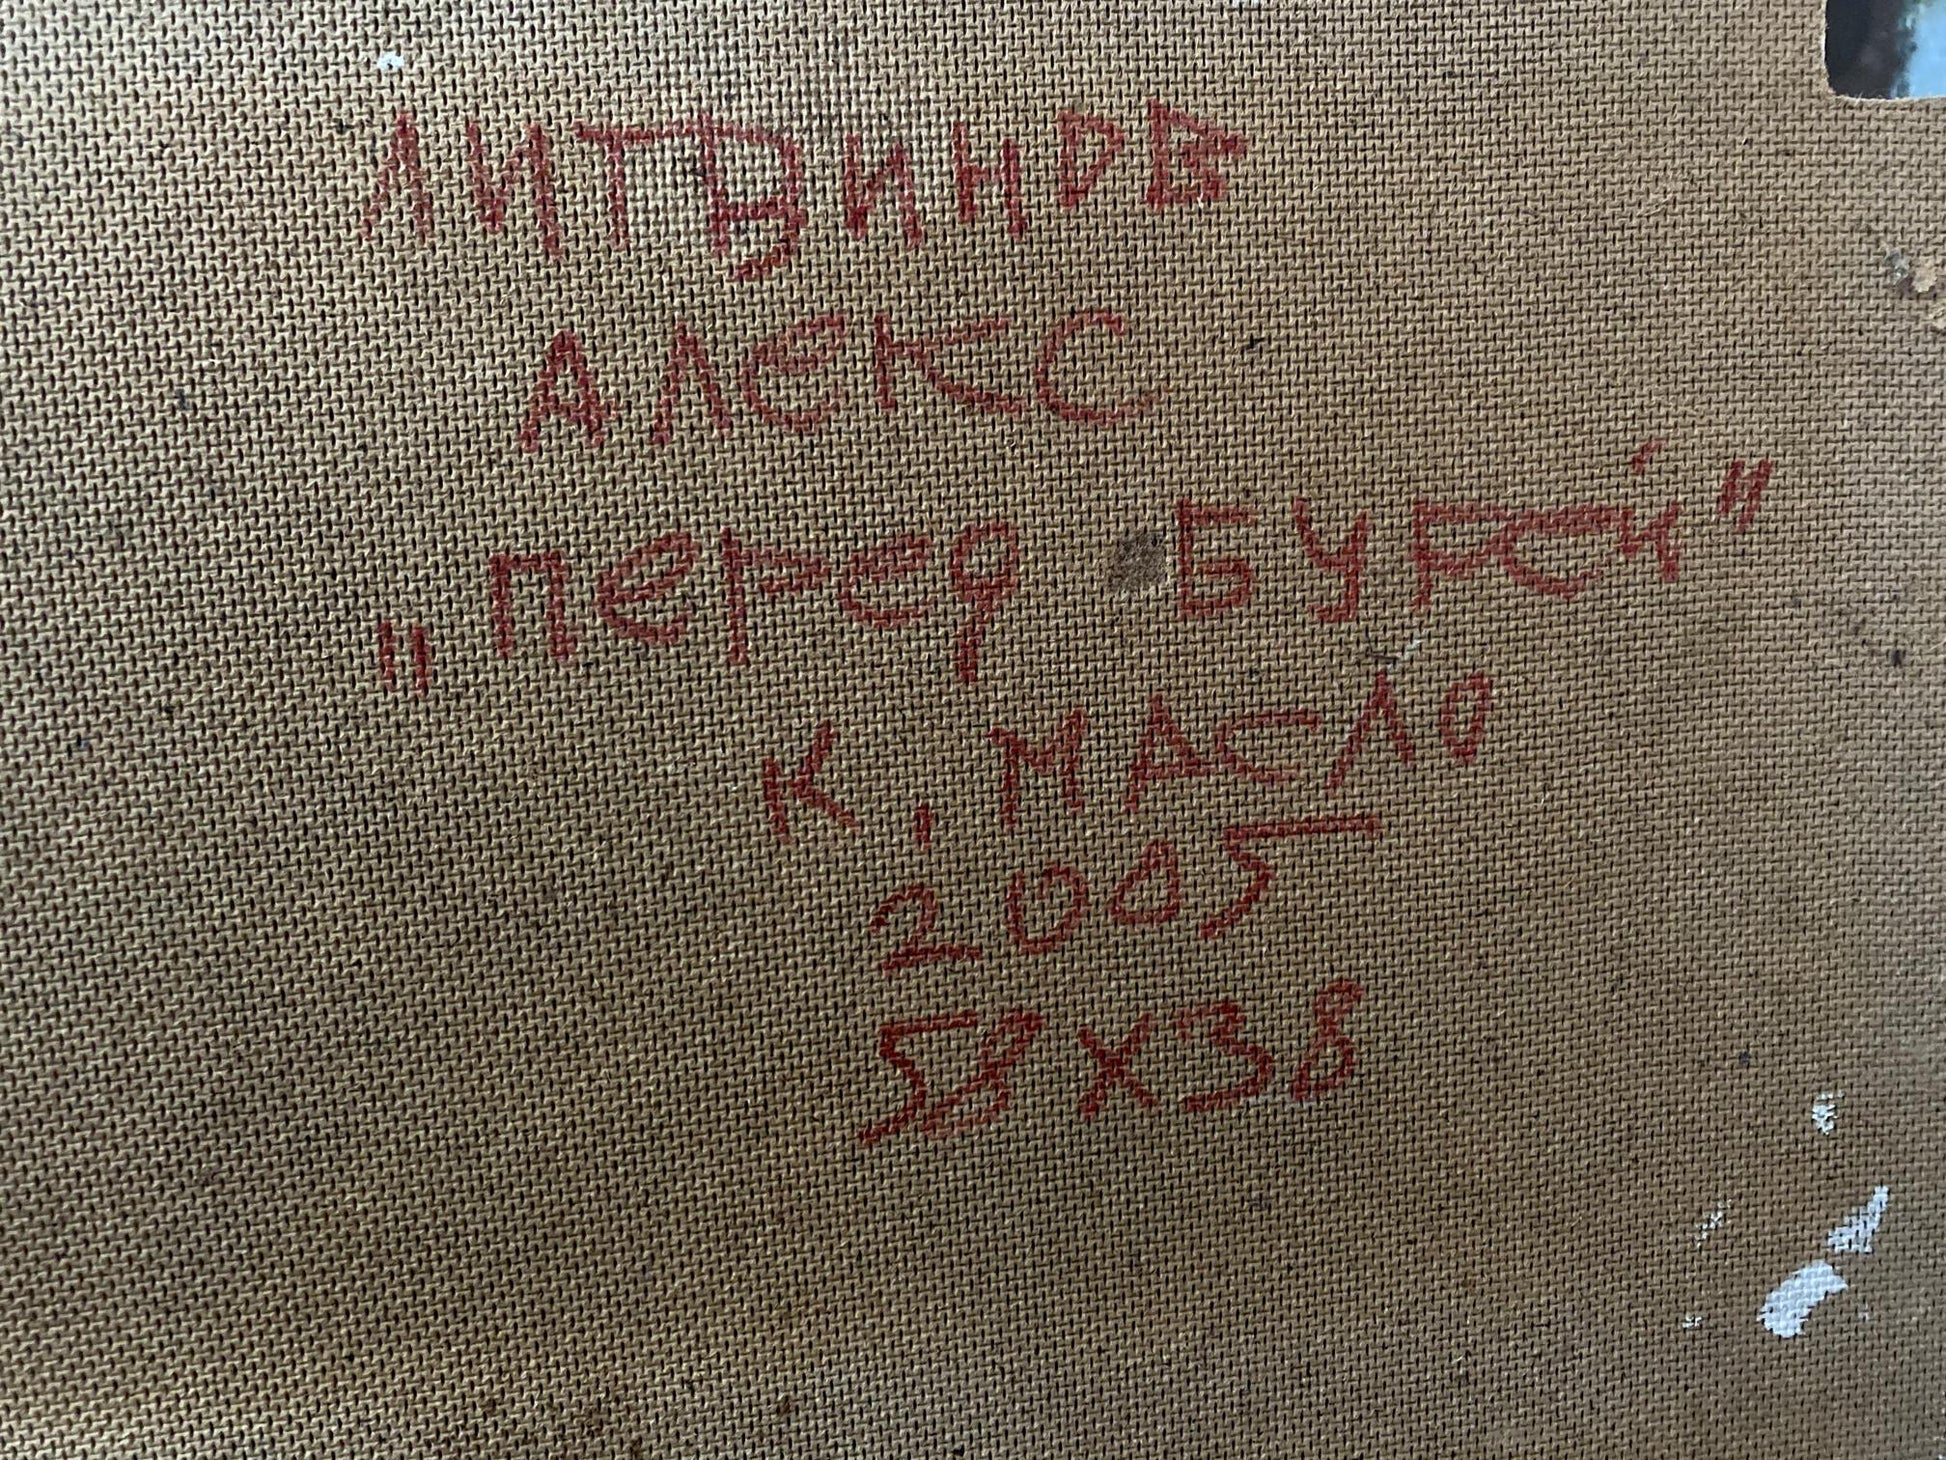 ЛИТВИНОВ
АЛЕКС
"ПЕРЕД БУРЕЙ"
К. МАСЛО
2005
58X38